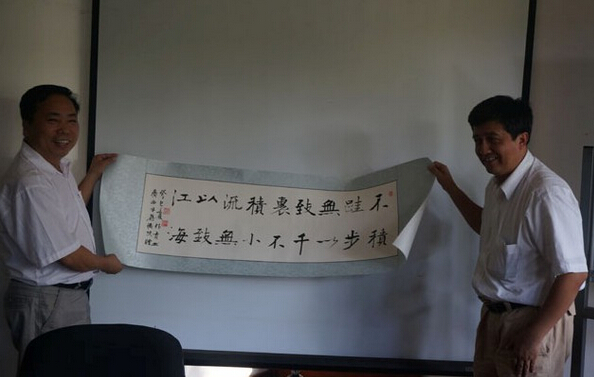 不積
跬步
無以
致千
裏不
積小
流無
以致
江海